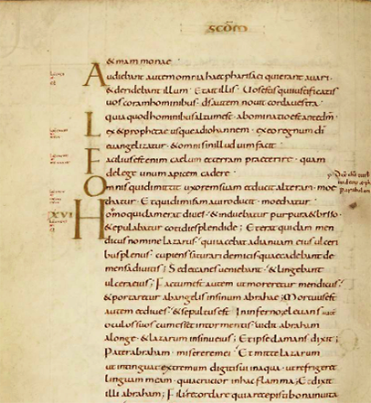 SCDM
& mamonae
Audiebant autem omnia haec pharisaei quierant auari·
& deridebant illum· Et ait illis· Uos estis qui iustificatis
uos coram hominibus· ds autem nouit corda uestra
quia quod hominibus altum est· abominatio est ante dm·
Lex & prophetae usque ad iohannem· ex eo regnum di
euangelizatur· & omnis in illud uim facit·
Facilius est enim caelum et terram praeterire· quam
de lege unum apicem cadere·
Omnis qui dimittit uxorem suam et ducit alteram· moe
chatur· Et qui dimissam a uiro ducit· moechatur·
XVI Homo quidam erat diues· & induebatur purpura & bysso·
& epulabatur cotidie splendide· Et erat quidam men
dicus nomine lazarus· qui iacebat ad ianuam eius ulceri
bus plenus· cupiens saturari de micis quae cadebant de
mensa diuitis· Sed et canes ueniebant· & lingebant
ulcera eius· Factum est autem ut moreretur mendicus·
& portaretur ab angelis in sinum abrahae· Mortuus est
autem et diues· & sepultus est· In inferno eleuans
oculos suos cum esset in tormentis· uidit abraham
a longe· & lazarum in sinu eius· Et ipse clamans dixit
Pater abraham· miserere mei· Et mitte lazarum
ut intinguat extremum digiti sui in aqua· ut refrigeret
linguam meam· quia crucior in hac flamma· Et dixit
illi abraham· Fili recordare quia recepisti bona in uita